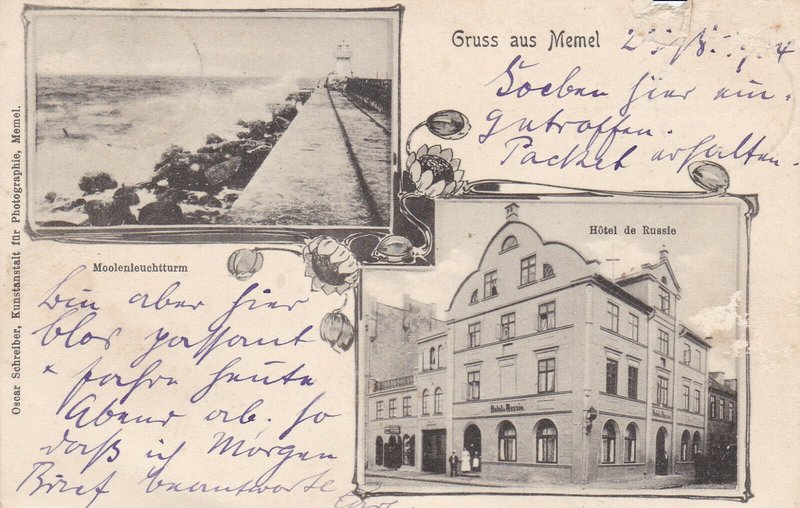 Gruss aus Memel
Soeben hier ein-
getroffen.
Packet erhalten.
Hôtel de Russie
Moolenleuchtturm
Oscar Schreiber, Kunstanstalt für Photographie, Memel.
Hotel de Russie.
Bin aber hier
blos passant
fahre heute
Abend ab. So
daß ich Morgen
Brief beantworte